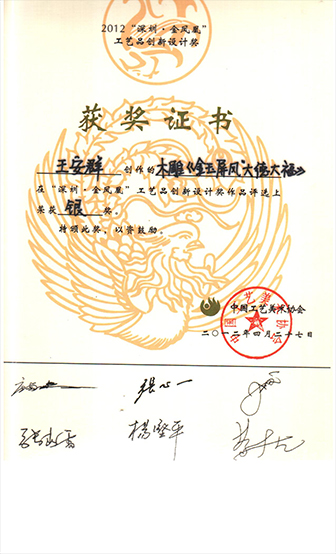 2012“深圳·金凤凰”
工艺品创新设计奖
获奖证书
王安群 创作的 木雕《金玉屏风"大德大福》
在“深圳·金凤凰”工艺品创新设计奖作品评选上
荣获 银 奖。
特颁此奖，以资鼓励。
中国工艺美术协会
二〇一二年四月二十七日
张心一
杨坚平